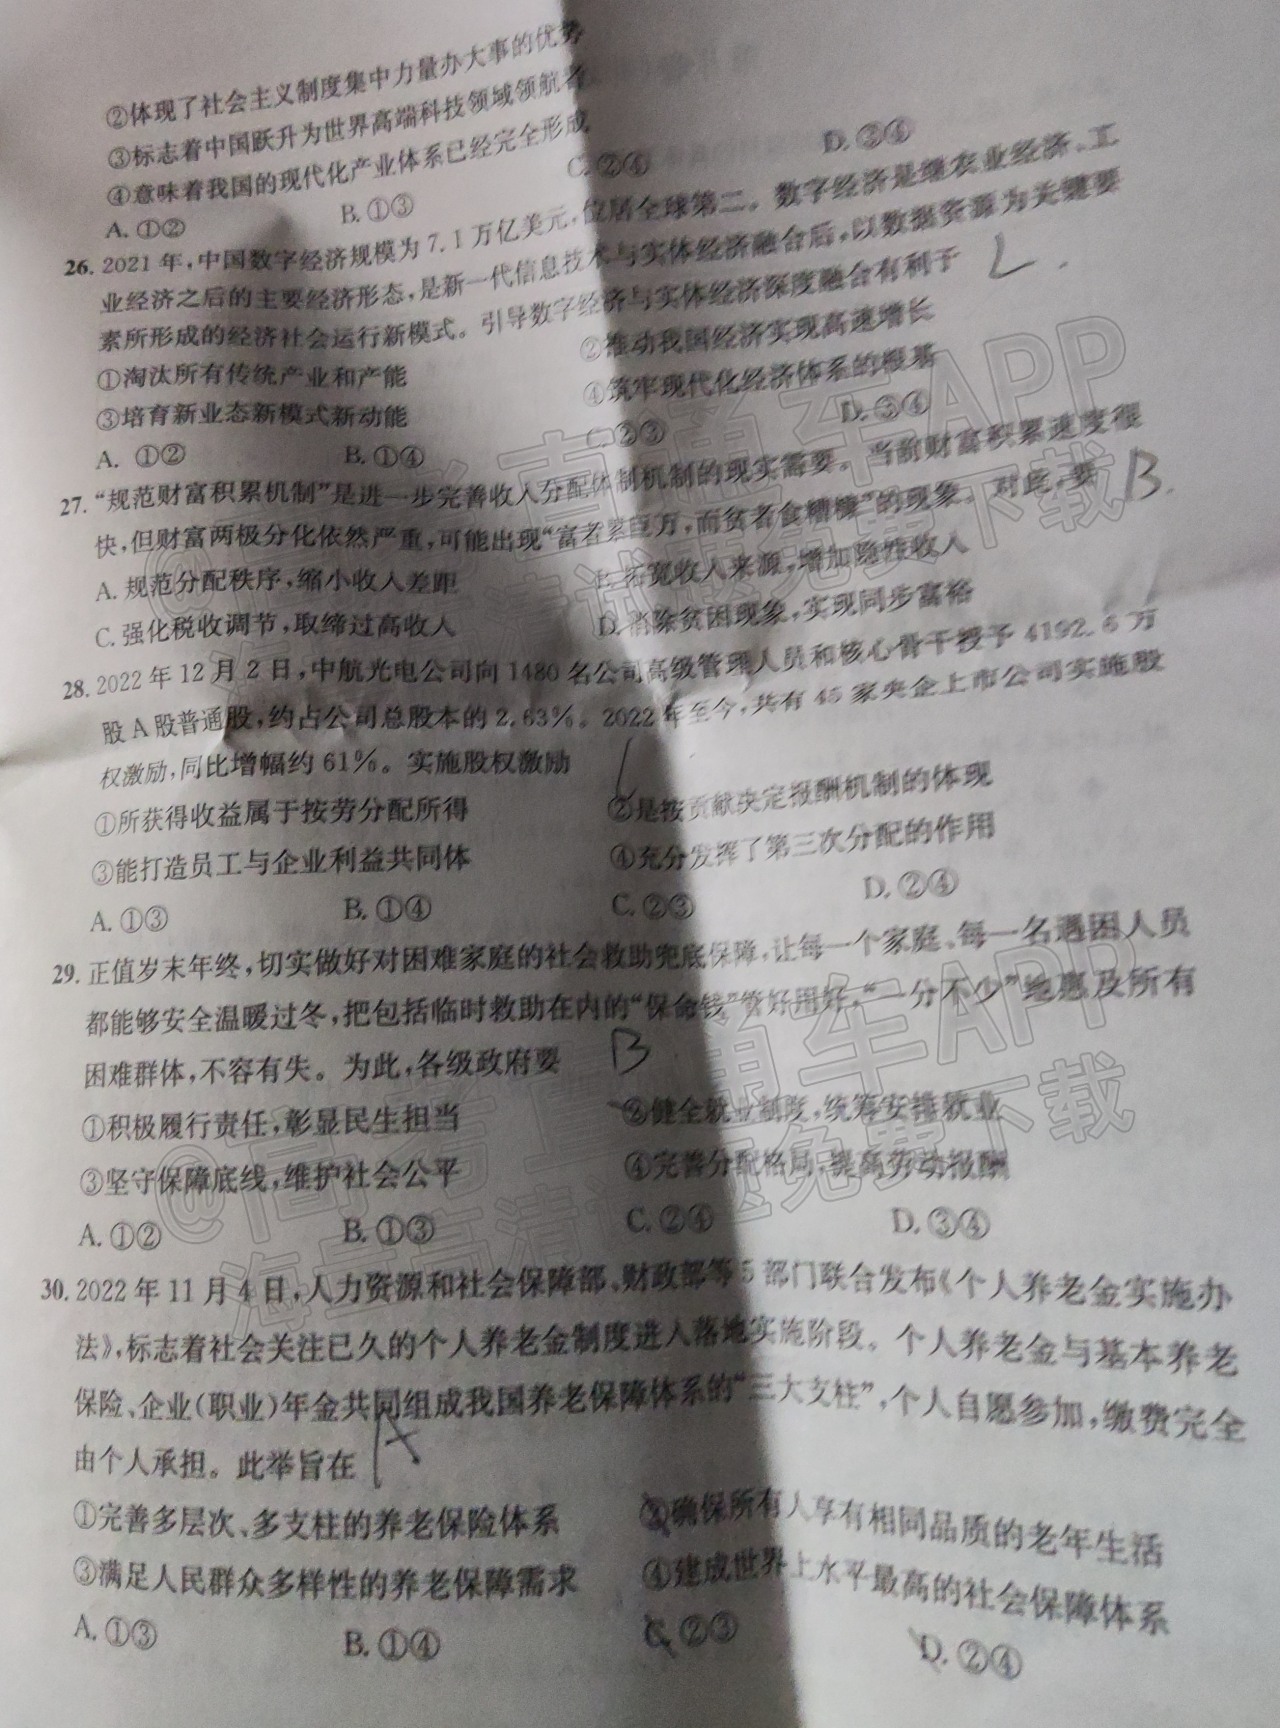 ②体现了社会主义制度集中力量办大事的优势
③标志着中国跃升为世界高端科技领域领航者
④意味着我国的现代化产业体系已经完全形成
A. ①② B. ①③ C. ②④ D. ③④
26. 2021年,中国数字经济规模为7.1万亿美元,位居全球第二。数字经济是继农业经济、工
业经济之后的主要经济形态,是新一代信息技术与实体经济融合后,以数据资源为关键要
素所形成的经济社会运行新模式。引导数字经济与实体经济深度融合有利于
①淘汰所有传统产业和产能 ②推动我国经济实现高速增长
③培育新业态新模式新动能 ④筑牢现代化经济体系的根基
A. ①② B. ①④ C. ②③ D. ③④
27. “规范财富积累机制”是进一步完善收入分配体制机制的现实需要。当前财富积累速度很
快,但财富两极分化依然严重,可能出现“富者累巨万,而贫者食糟糠”的现象。对此,要 B
A. 规范分配秩序,缩小收入差距 B. 拓宽收入来源,增加隐性收入
C. 强化税收调节,取缔过高收入 D. 消除贫困现象,实现同步富裕
28. 2022年12月2日,中航光电公司向1480名公司高级管理人员和核心骨干授予4192.6万
股A股普通股,约占公司总股本的2.63%。2022年至今,共有45家央企上市公司实施股
权激励,同比增幅约61%。实施股权激励
①所获得收益属于按劳分配所得 ②是按贡献决定报酬机制的体现
③能打造员工与企业利益共同体 ④充分发挥了第三次分配的作用
A. ①③ B. ①④ C. ②③ D. ②④
29. 正值岁末年终,切实做好对困难家庭的社会救助兜底保障,让每一个家庭、每一名遇困人员
都能够安全温暖过冬,把包括临时救助在内的“保命钱”管好用好,“一分不少”地惠及所有
困难群体,不容有失。为此,各级政府要 B
①积极履行责任,彰显民生担当 ②健全就业制度,统筹安排就业
③坚守保障底线,维护社会公平 ④完善分配格局,提高劳动报酬
A. ①② B. ①③ C. ②④ D. ③④
30. 2022年11月4日,人力资源和社会保障部、财政部等5部门联合发布《个人养老金实施办
法》,标志着社会关注已久的个人养老金制度进入落地实施阶段。个人养老金与基本养老
保险、企业(职业)年金共同组成我国养老保障体系的“三大支柱”,个人自愿参加,缴费完全
由个人承担。此举旨在 A
①完善多层次、多支柱的养老保险体系 ②确保所有人享有相同品质的老年生活
③满足人民群众多样性的养老保障需求 ④建成世界上水平最高的社会保障体系
A. ①③ B. ①④ C. ②③ D. ②④
@高考直通车APP
海量高清试题免费下载
@高考直通车APP
海量高清试题免费下载